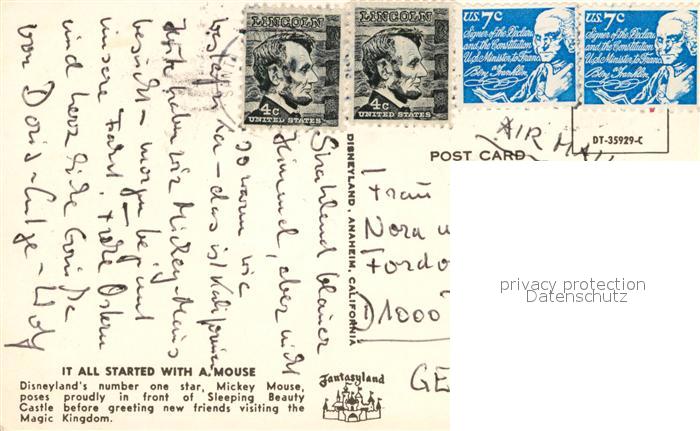 LINCOLN
4c
UNITED STATES
LINCOLN
4c
UNITED STATES
U.S. 7c
Signer of the Declara
and the Constitution
U.S. Minister to France
Benj. Franklin
U.S. 7c
Signer of the Declara
and the Constitution
U.S. Minister to France
Benj. Franklin
AIR MAIL
DT-35929-C
POST CARD
DISNEYLAND, ANAHEIM, CALIFORNIA
Strahlend blauer
Himmel, aber nicht
so warm wie
- das ist Kalifornien
haben wir Mickey Maus
besucht - morgen beginnt
unsere Fahrt. Frohe Ostern
und herzliche Grüße
von Doris - Antje - Wolf
Frau
Nora u
Fordo
1000
GE
privacy protection
Datenschutz
IT ALL STARTED WITH A MOUSE
Disneyland's number one star, Mickey Mouse,
poses proudly in front of Sleeping Beauty
Castle before greeting new friends visiting the
Magic Kingdom.
Fantasyland